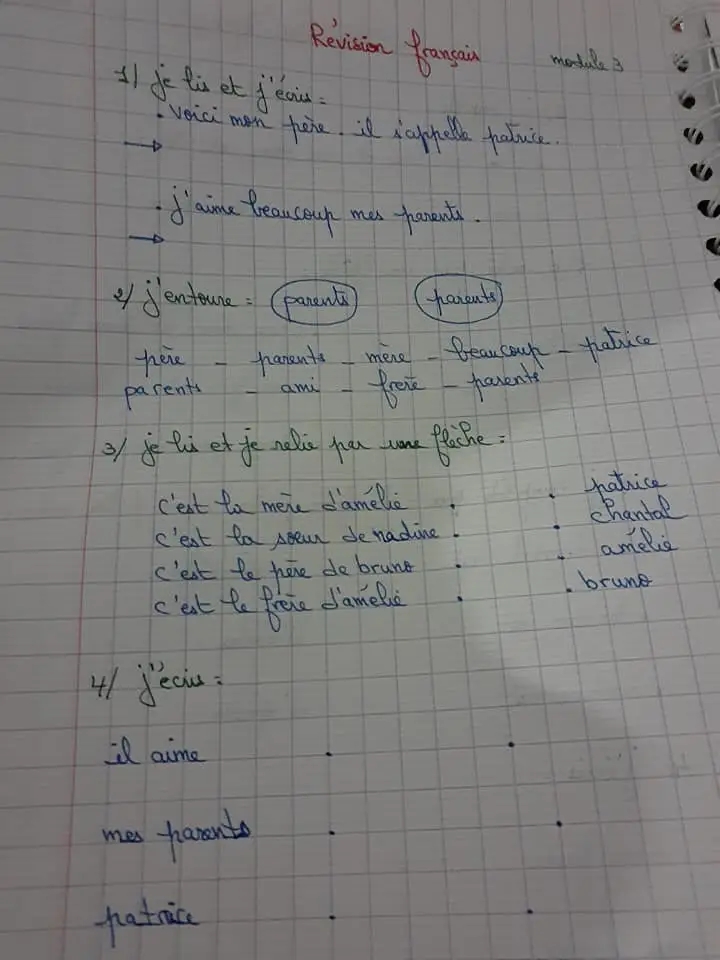 Révision français module 3
1/ je lis et j'écris :
. voici mon père . il s'appelle patrice .
→
. j'aime beaucoup mes parents .
→
2/ j'entoure : parents parents
père - parents - mère - beaucoup - patrice
parents - ami - frère - parents
3/ je lis et je relie par une flèche :
c'est la mère d'amélie . . patrice
c'est la sœur de nadine . . chantal
c'est le père de bruno . . amélie
c'est le frère d'amélie . . bruno
4/ j'écris :
il aime . .
mes parents . .
patrice . .